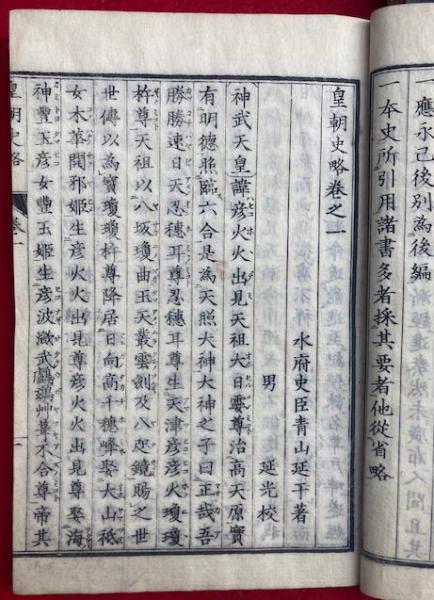 一應永己後別為後編
一本史所引用諸書多者採其要者他從省略
皇朝史略卷之一
水府史臣青山延于著
男　延光校
神武天皇諱彥火火出見天祖大日孁尊治高天原實
有明德照臨六合是為天照大神大神之子曰正哉吾
勝勝速日天忍穗耳尊忍穗耳尊生天津彥彥火瓊瓊
杵尊天祖以八坂瓊曲玉天叢雲劍及八咫鏡賜之世
世傳以為寶瓊瓊杵尊降居日向高千穗峰娶大山祇
女木華開邪姬生彥火火出見尊彥火火出見尊娶海
神豐玉彥女豐玉姬生彥波瀲武鸕鷀艸葺不合尊帝其
皇朝史略　卷一　一